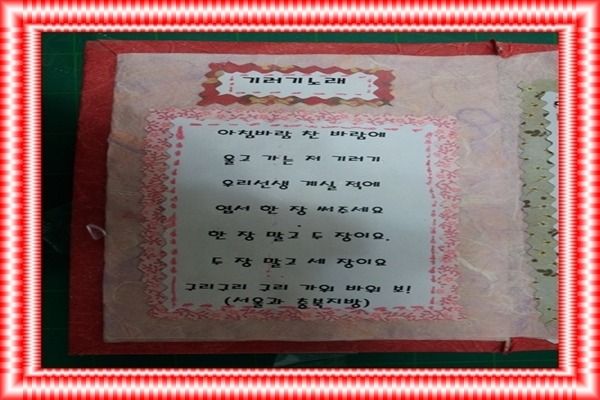 기러기노래
아침바람 찬 바람에
울고 가는 저 기러기
우리선생 계실 적에
엽서 한 장 써주세요
한 장 말고 두 장이요.
두 장 말고 세 장이요
구리구리 구리 가위 바위 보!
(서울과 충북지방)